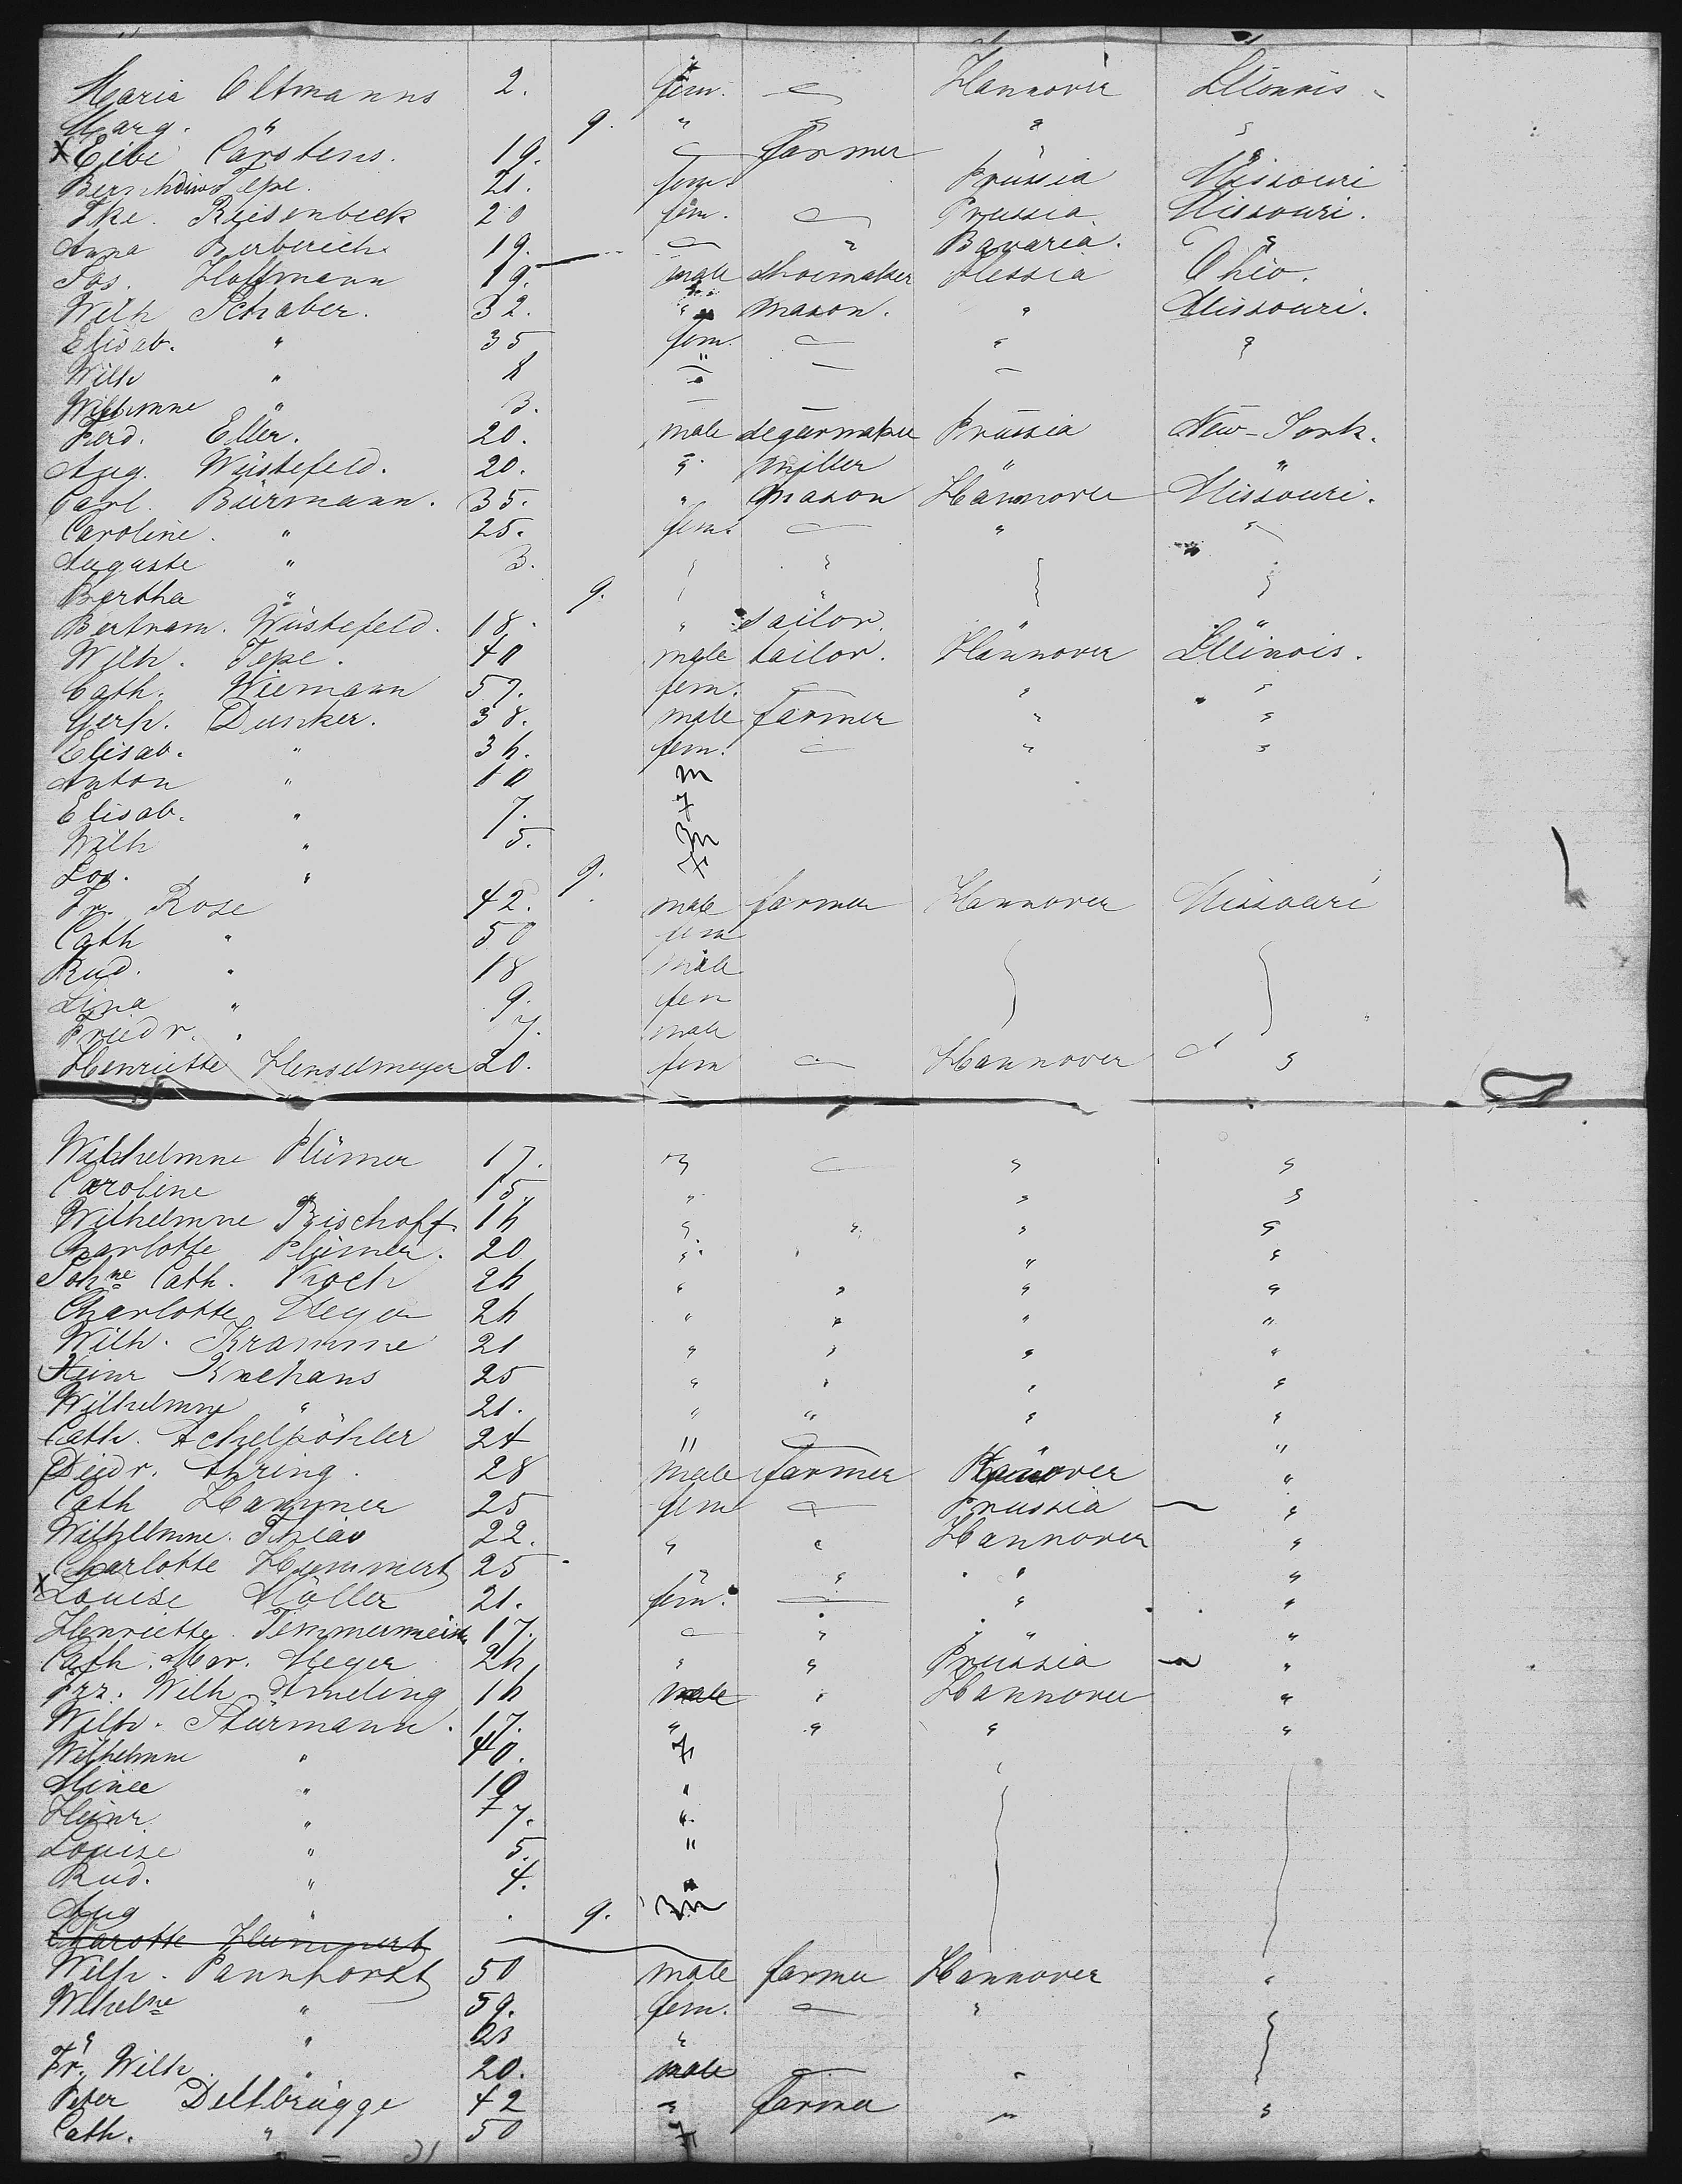 Maria Oltmanns 2. fem. Hannover Illinois
Marg. " 9. " " "
X Eibe Carstens. 19. farmer "
Bernhdine Tepe. 21. fem. Prussia Missouri
Ike. Riesenbeck 20 fem. Prussia Missouri.
Anna Berberich 19. " Bavaria. "
Jos. Hoffmann 19. male shoemaker Hessia Ohio.
Wilh Schaber. 32. " mason. " Missouri.
Elisab. " 35 fem. " "
Wilh "
Wilhmne " 3.
Ferd. Eller. 20. male segarmaker Prussia New-York.
Aug. Wüstefeld. 20. " miller " "
Carl. Buermann. 35. " mason Hannover Missouri.
Caroline. " 25. fem. " "
Auguste " 3. " "
Bertha " 9. "
Bertram. Wüstefeld. 18. " sailor. " "
Wilh. Tepe. 40 male tailor. Hannover Illinois.
Cath. Wiemann 57. fem. " "
Gerh. Dunker. 38. male farmer " "
Elisab. " 36. fem. " "
Anton " 10 m
Elisab. " 7. f
Wilh " 5. m
" 9. f
Fr. Rose 42. male farmer Hannover Missouri
Cath " 50 fem
Rud. " 18 male
Lina " 9. fem
Friedr. " 7. male
Henriette Henselmeyer 20. fem Hannover "
Wilhelmne Plümer 17. " " "
Caroline " 15. " " "
Wilhelmne Bischoff. 16 " " " "
Charlotte Plümer. 20 " " " "
Johne Cath. Koch 26 " " " "
Charlotte Meyer 26 " " " "
Wilh. Kramme 21 " " " "
Heinr Knehans 25 " " " "
Wilhelmne " 21. " " " "
Cath. Achelpöhler 24 " "
Diedr. Ahring. 28 male farmer Hanover "
Cath Hammer 25 fem Prussia "
Wilhelmne. Thias 22. " " Hannover "
Charlotte Hummert 25 " " " "
X Louise Möller 21. fem. " "
Henriette. 17. " " "
Cath. Mar. Meyer 26 " " Prussia "
Frz. Wilh Ameling 16 male " Hannover "
Wilh. Stürmann. 17. " " " "
Wilhelmne " 40. f "
" 10 "
Heinr " 7. "
Louise " 5. "
Rud. " 4. "
Aug " 9. m
Charotte Hummert
Wilh. Pannhorst 50 male farmer Hannover "
Wilhelne " 59. fem. "
" " 23 "
Fr. Wilh. " 20. male "
Peter Dellbrügge 42 " farmer " "
Cath. " 50 f